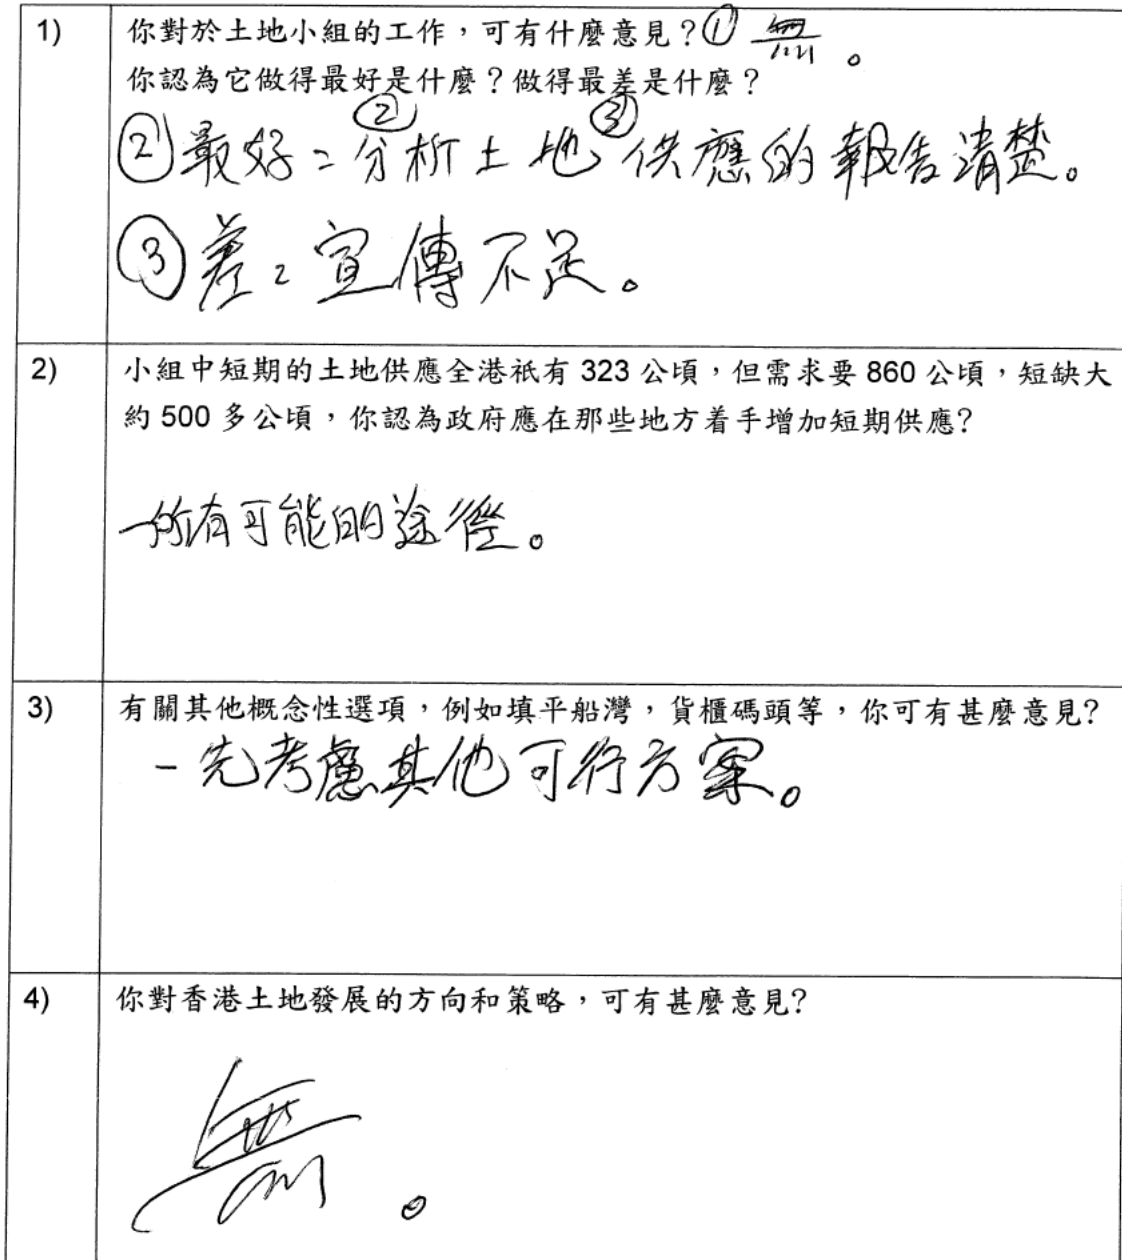 1) 你對於土地小組的工作，可有什麼意見？① 無。
你認為它做得最好是什麼？做得最差是什麼？
② ③
②最好：分析土地供應的報告清楚。
③差：宣傳不足。
2) 小組中短期的土地供應全港祇有 323 公頃，但需求要 860 公頃，短缺大
約 500 多公頃，你認為政府應在那些地方着手增加短期供應?
-所有可能的途徑。
3) 有關其他概念性選項，例如填平船灣，貨櫃碼頭等，你可有甚麼意見?
- 先考慮其他可行方案。
4) 你對香港土地發展的方向和策略，可有甚麼意見?
無。